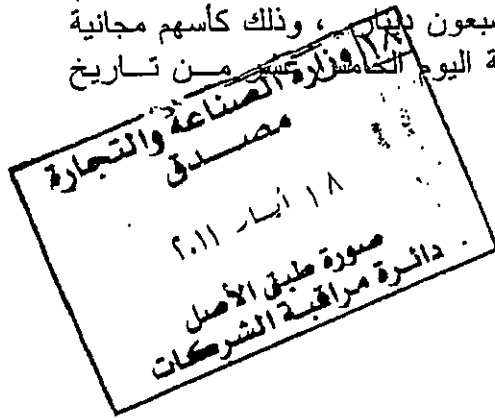 سبعون دينار ، وذلك كأسهم مجانية
ة اليوم الخامس عشر من تاريخ
وزارة الصناعة والتجارة
مصدق
١٨ أيار ٢٠١١
صورة طبق الأصل
دائرة مراقبة الشركات